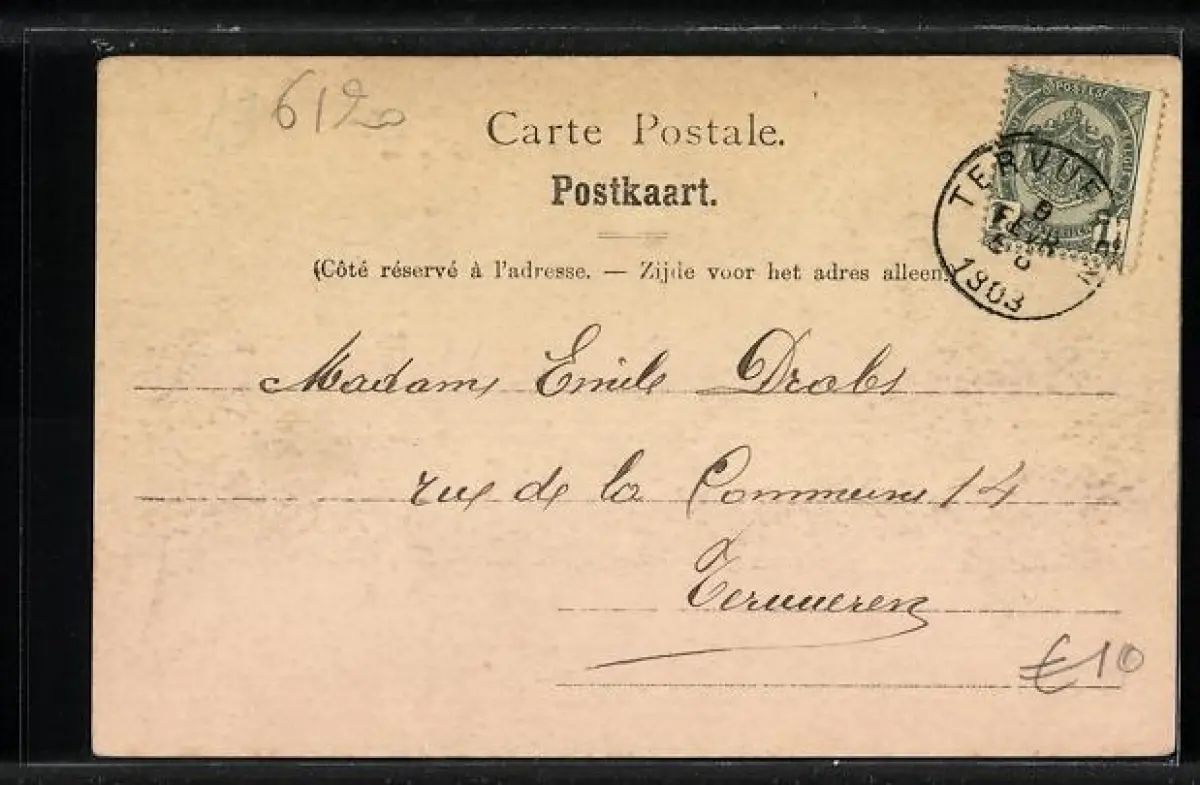 6120
Carte Postale.
Postkaart.
(Côté réservé à l'adresse. — Zijde voor het adres alleen.)
POSTES
TERVUEREN
8
FEVR
5-6
1903
Madame Emile Drabs
rue de la Commune 14
Tervueren
€10